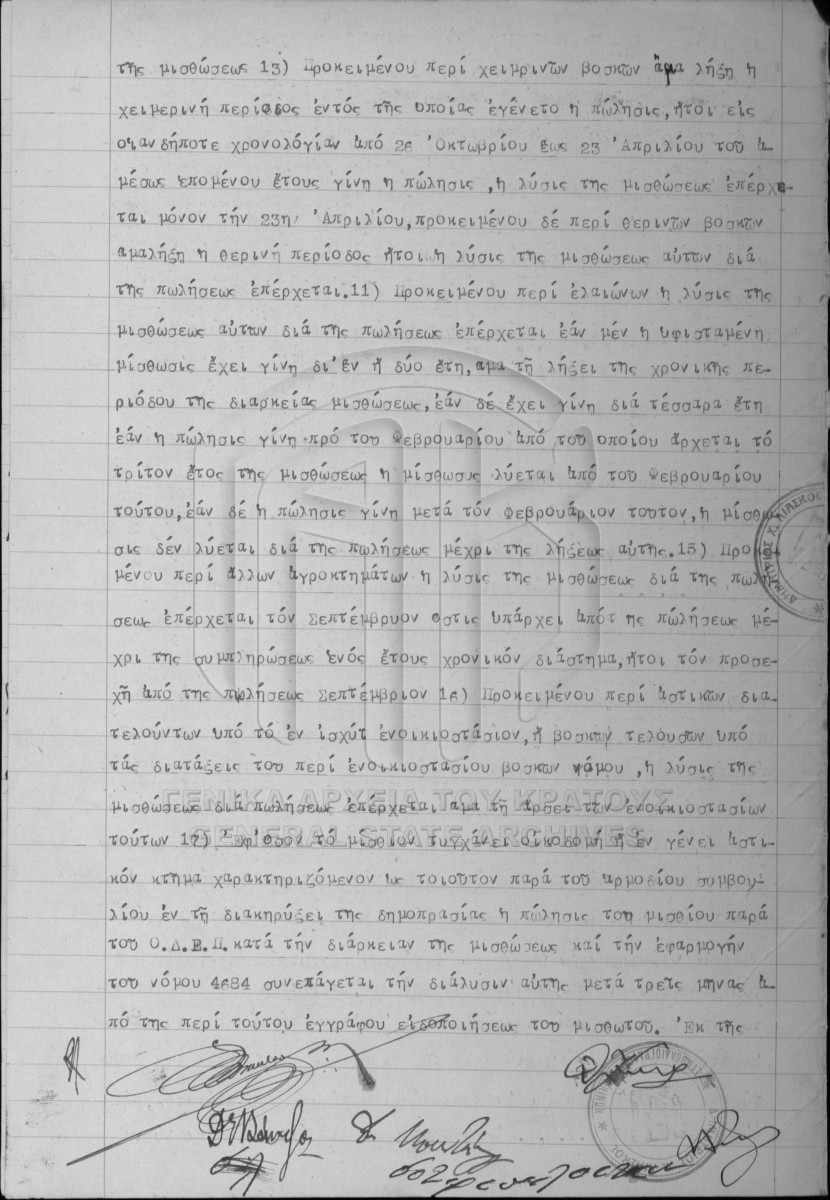 τῆς μισθώσεως 13) Προκειμένου περί χειμρινῶν βοσκῶν ἅμα λήξη η
χειμερινή περίοδος ἐντός τῆς οποίας ἐγένετο η πώλησις,ἤτοι εἰς
οιανδήποτε χρονολογίαν ἀπό 26 Ὀκτωβρίου ἕως 23 Ἀπριλίου τοῦ ἀ-
μέσως ἑπομένου ἔτους γίνη η πώλησις ,η λύσις της μισθώσεως ἐπέρχε-
ται μόνον τήν 23η/ Ἀπριλίου,προκειμένου δέ περί θερινῶν βοσκῶν
αμαλήξη η θερινή περίοδος ἤτοι η λύσις της μισθώσεως αὐτῶν διά
της πωλήσεως ἐπέρχεται.11) Προκειμένου περί ἐλαιώνων η λύσις της
μισθώσεως αὐτων διά της πωλήσεως ἐπέρχεται ἐάν μέν η υφισταμένη
μίσθωσις ἔχει γίνη δι'ἕν ἤ δύο ἔτη,αμα τῇ λήξει της χρονικῆς πε-
ριόδου της διαρκείας μισθώσεως,ἐάν δέ ἔχει γίνη διά τέσσαρα ἔτη
ἐάν η πώλησις γίνη πρό του Φεβρουαρίου ἀπό του οποίου ἄρχεται τό
τρίτον ἔτος της μισθώσεως η μίσθωσις λύεται ἀπό του Φεβρουαρίου
τούτου,ἐάν δέ η πώλησις γίνη μετά τόν Φεβρουάριον τουτον,η μίσθω-
σις δέν λύεται διά της πωλήσεως μέχρι της λήξεως αὐτης.15) Προκει
μένου περί ἄλλων ἀγροκτημάτων η λύσις της μισθώσεως διά της πωλή
σεως ἐπέρχεται τόν Σεπτέμβρυον οστις υπάρχει ἀπότ ης πωλήσεως μέ-
χρι της συμπληρώσεως ἑνός ἔτους χρονικόν διάστημα,ἤτοι τόν προσε-
χῆ ἀπό της πωλήσεως Σεπτέμβριον 16) Προκειμένου περί ἀστικῶν δια-
τελούντων υπό τό ἐν ἰσχύτ ἐνοικιοστάσιον,ἤ βοσκῶν τελουσῶν υπό
τάς διατάξεις του περί ἐνοικιοστασίου βοσκῶν νόμου ,η λύσις της
μισθώσεως διά πωλήσεως ἐπέρχεται αμα τῇ ἄρσει τῶν ἐνοικιοστασίων
τούτων 17) Ἐφ'ὅσον τό μίσθιον τυγχάνει οἰκοδομή ἤ ἐν γένει ἀστι-
κόν κτημα χαρακτηριζόμενον ως τοιοῦτον παρά του αρμοδίου συμβου-
λίου ἐν τῇ διακηρύξει της δημοπρασίας η πώλησις του μισθίου παρά
του Ο.Δ.Ε.Π.κατά τήν διάρκειαν της μισθώσεως καί τήν ἐφαρμογήν
του νόμου 4684 συνεπάγεται τήν διάλυσιν αὐτης μετά τρεῖς μηνας ἀ-
πό της περί τούτου ἐγγράφου εἰδοποιήσεως του μισθωτοῦ. Ἐκ τῆς
ΓΕΝΙΚΑ ΑΡΧΕΙΑ ΤΟΥ ΚΡΑΤΟΥΣ
GENERAL STATE ARCHIVES